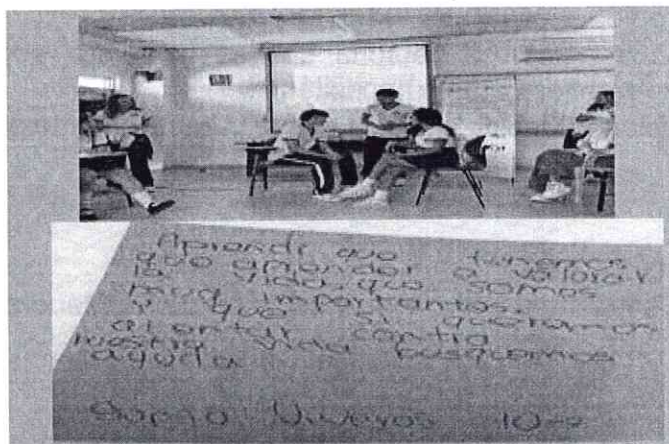 Aprendi que tenemos
que aprender a valorar
la vida, que somos
muy importantes.
y que si queremos
atentar contra
nuestra vida busquemos
ayuda.
10-2